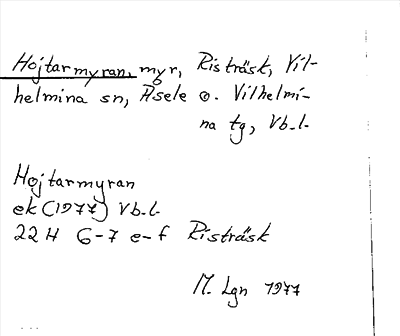 Hojtarmyran, myr, Risträsk, Vil-
helmina sn, Åsele o. Vilhelmi-
na tg, Vb.l.
Hojtarmyran
ek (1977) Vb.l.
22H 6-7 e-f Risträsk
M. Lgn 1977